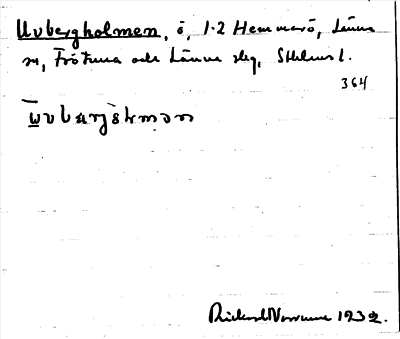 Uvbergholmen, ö, 1·2 Hemmarö, Länna
sn, Frötuna och Länna skg, Sthlms l.
364
Rickard Norrman 1932.